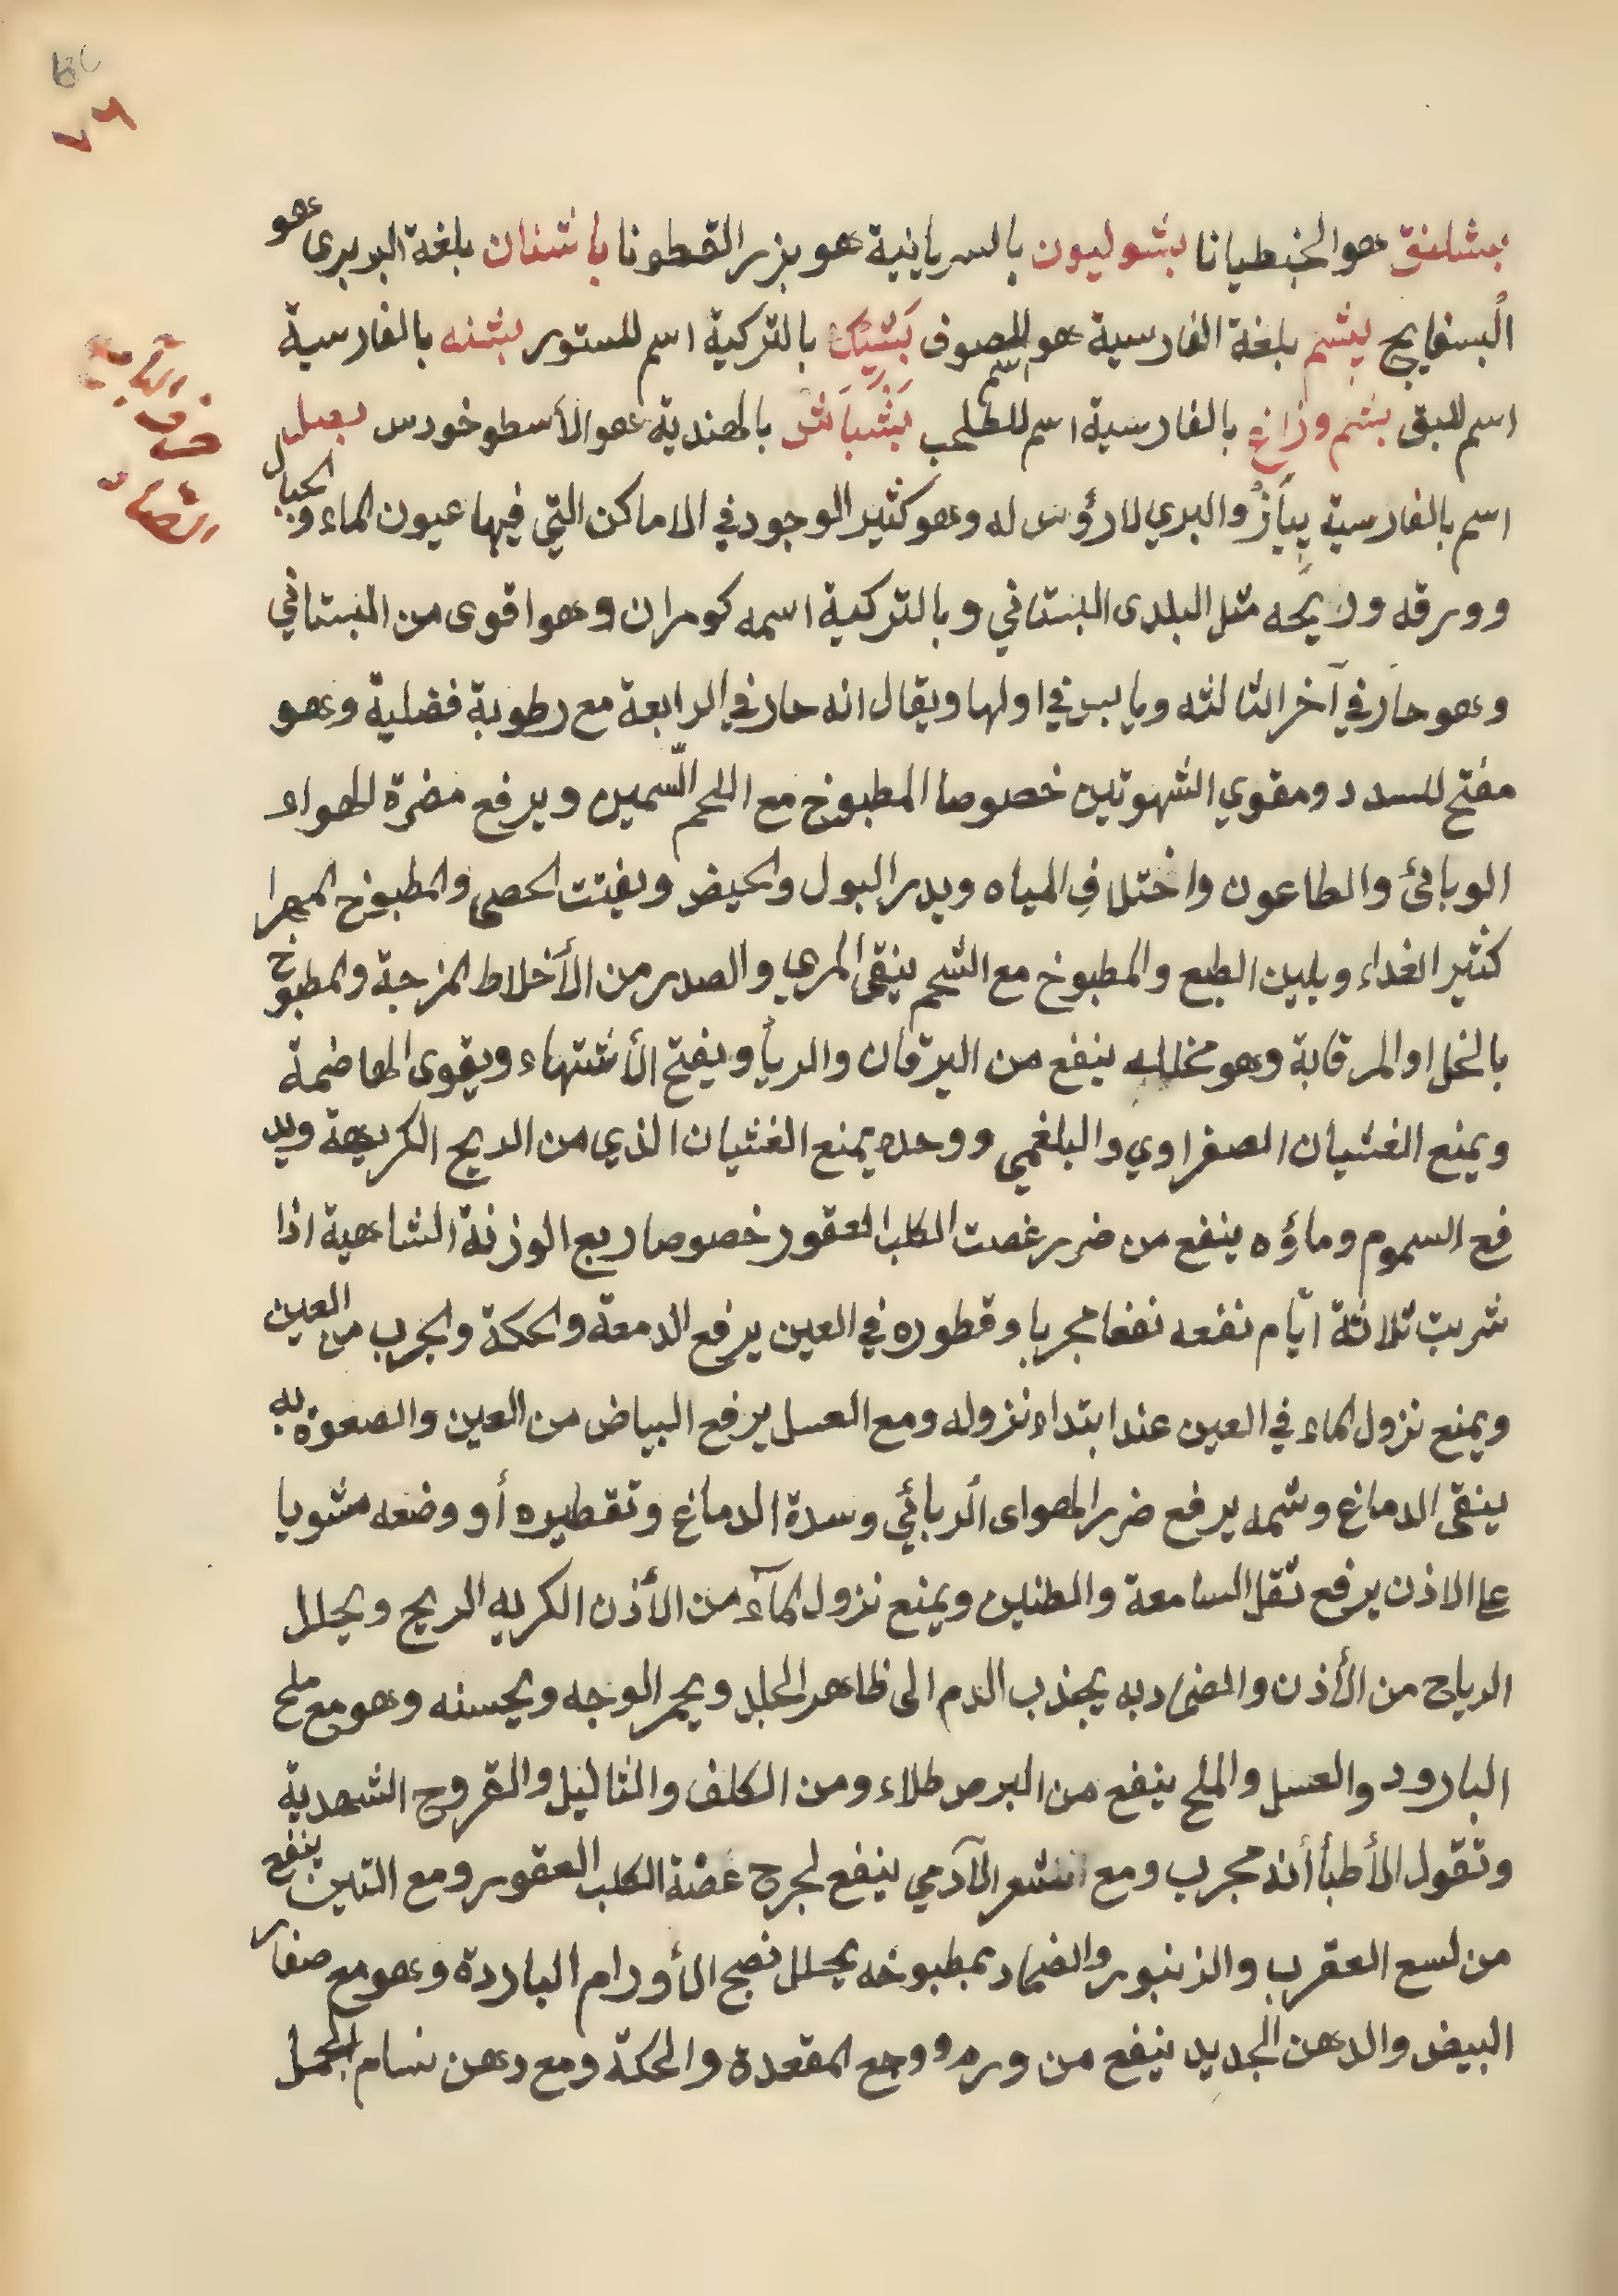 ٧٦
بشلنق هو الجنطيانا بشوليون بالسريانية هو بزر القطونا باشنان بلغة البربرى هو
البسفايج يشم بلغة الفارسية هو اسم للصوف بَشِيكْ بالتركية اسم للستور بشنه بالفارسية
اسم للبق بشم وزاغ بالفارسية اسم للطحلب بَشْبَاَشْ بالهندية هو الأسطوخودس بصل
اسم بالفارسية پيَازْ والبري لا رؤس له وهو كثير الوجود في الاماكن التي فيها عيون الماء والجبال
وورقه وريحه مثل البلدى البستاني وبالتركية اسمه كومران وهو اقوى من البستاني
وهو حار في آخر الثالثه ويابس في اولها ويقال انه حار في الرابعة مع رطوبة فضلية وهو
مفتح للسدد ومقوي الشهوتين خصوصا المطبوخ مع اللحم السّمين ويرفع مضرة الهواء
الوبائئ والطاعون واختلاف المياه ويدر البول والحيض ويفتت الحصى والمطبوخ المهرا
كثير الغداء ويلين الطبع والمطبوخ مع الشحم ينقى المري والصدر من الأخلاط المزجة والمطبوخ
بالخل او المرقابة وهو مخلله ينفع من اليرقان والريأ ويفتح الأشتهاء ويقوى الهاضمة
ويمنع الغشيان الصفراوي والبلغمي ووحده يمنع الغثيان الذي من الريح الكريهة ويد
فع السموم وماؤه ينفع من ضرر غصت الكلب العقور خصوصا ربع الوزنة الشاهية اذا
شربت ثلاثة ايّام نفعه نفعا مجربا وقطوره في العين يرفع الدمعة والحكة والجرب من العين
ويمنع نزول الماء في العين عند ابتداء نزوله ومع العسل يرفع البياض من العين والصعوة به
ينقى الدماغ وشمه يرفع ضرر الهواى الربائي وسدة الدماغ وتقطيره أو وضعه مشويا
على الاذن يرفع ثقل السامعة والطنين ويمنع نزول المآء من الأذن الكريه الريح ويحلل
الرياح من الأذن والضماد به يجذب الدم الى ظاهر الجلد ويحمر الوجه ويحسنه وهو مع ملح
البارود والعسل والملح ينفع من البرص طلاء ومن الكلف والثاليل والقروح الشهدية
وتقول الأطبأ أنه مجرب ومع الشعر الآدمي ينفع لجرح عضة الكلب العقور ومع التين ينفع
من لسع العقرب والزنبور والضماد بمطبوخه يحلل نضج الأورام الباردة وهو مع صفار
البيض والدهن الجديد ينفع من ورم ووجع المقعدة والحكة ومع دهن سنام الجمل
حرف البآء مع
الصاد